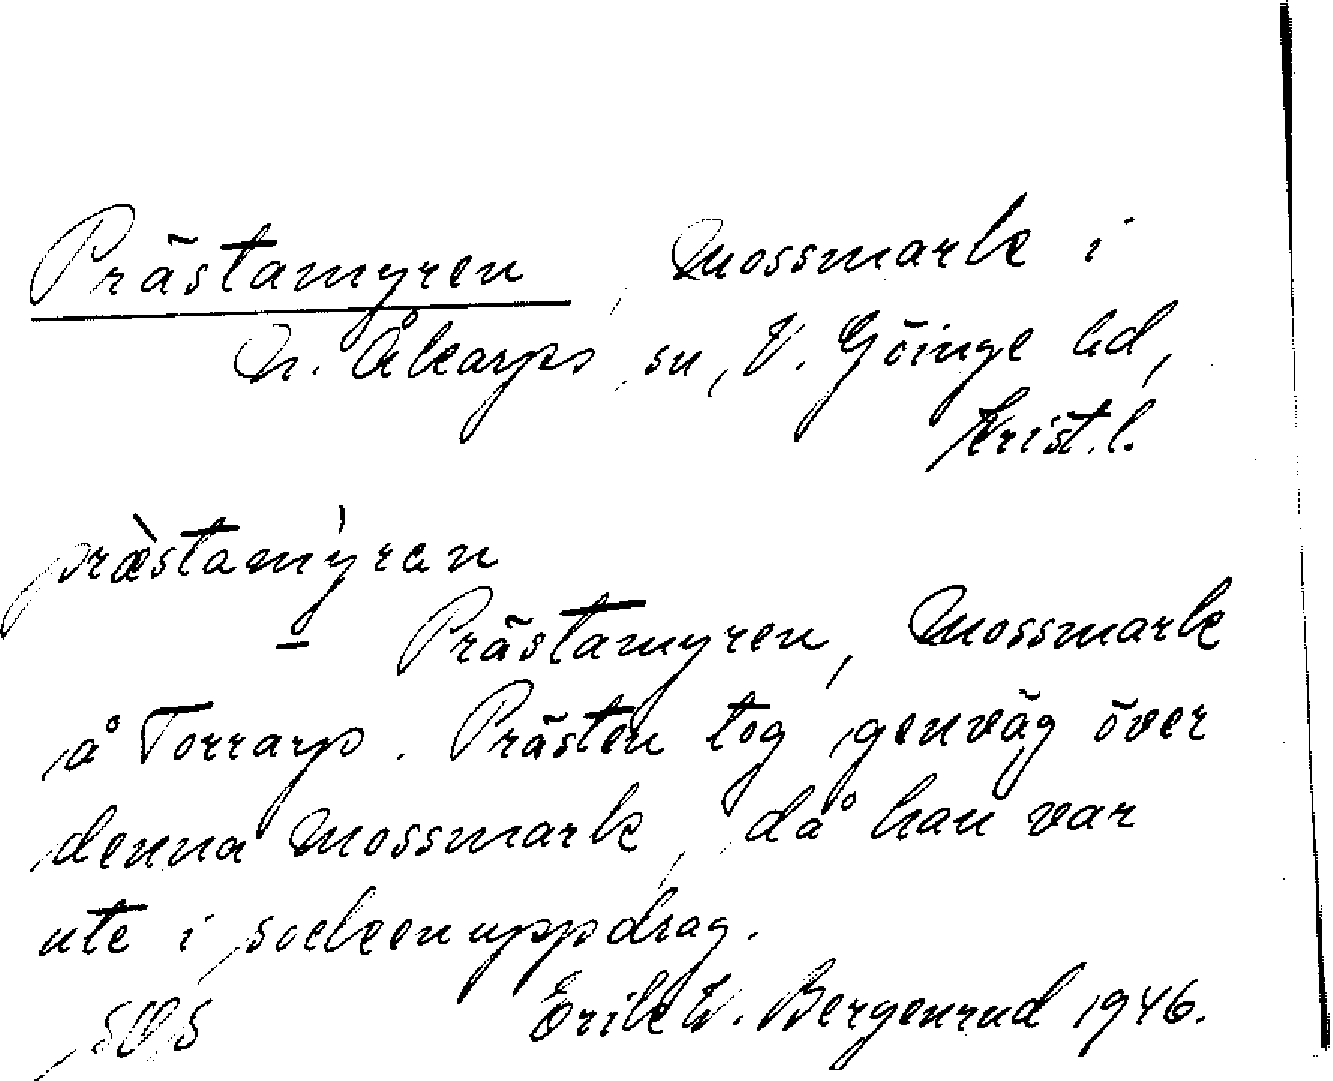 Prästamyren, Mossmark i
N. Åkarps sn, V. Göinge hd,
Krist. l.
præ̀stamýrən
— Prästamyren, Mossmark
å Torrarp. Prästen tog genväg över
denna Mossmark, då han var
ute i sockenuppdrag.
Erik W. Bergenrud 1946.